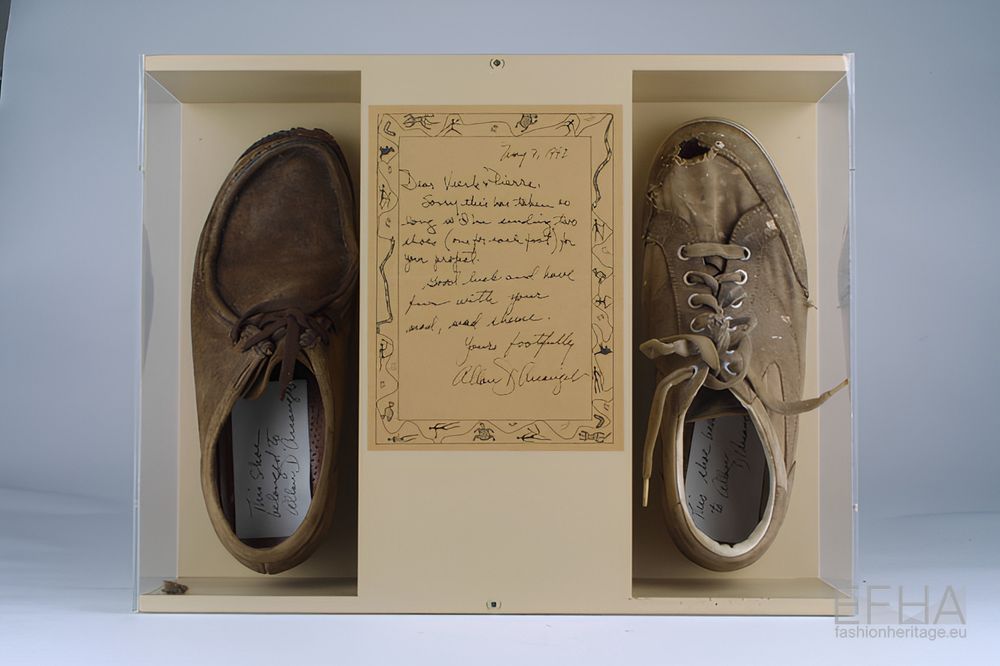 May 7, 1992
Dear Veerle & Pierre,
Sorry this has taken so
long so I'm sending two
shoes (one for each foot) for
your project.
Good luck and have
fun with your
mad, mad scheme.
Yours footfully
Allan D'Arcangelo
This shoe
belonged to
Allan D'Arcangelo
This shoe
to Allan
D'Arcang
EFHA
fashionheritage.eu